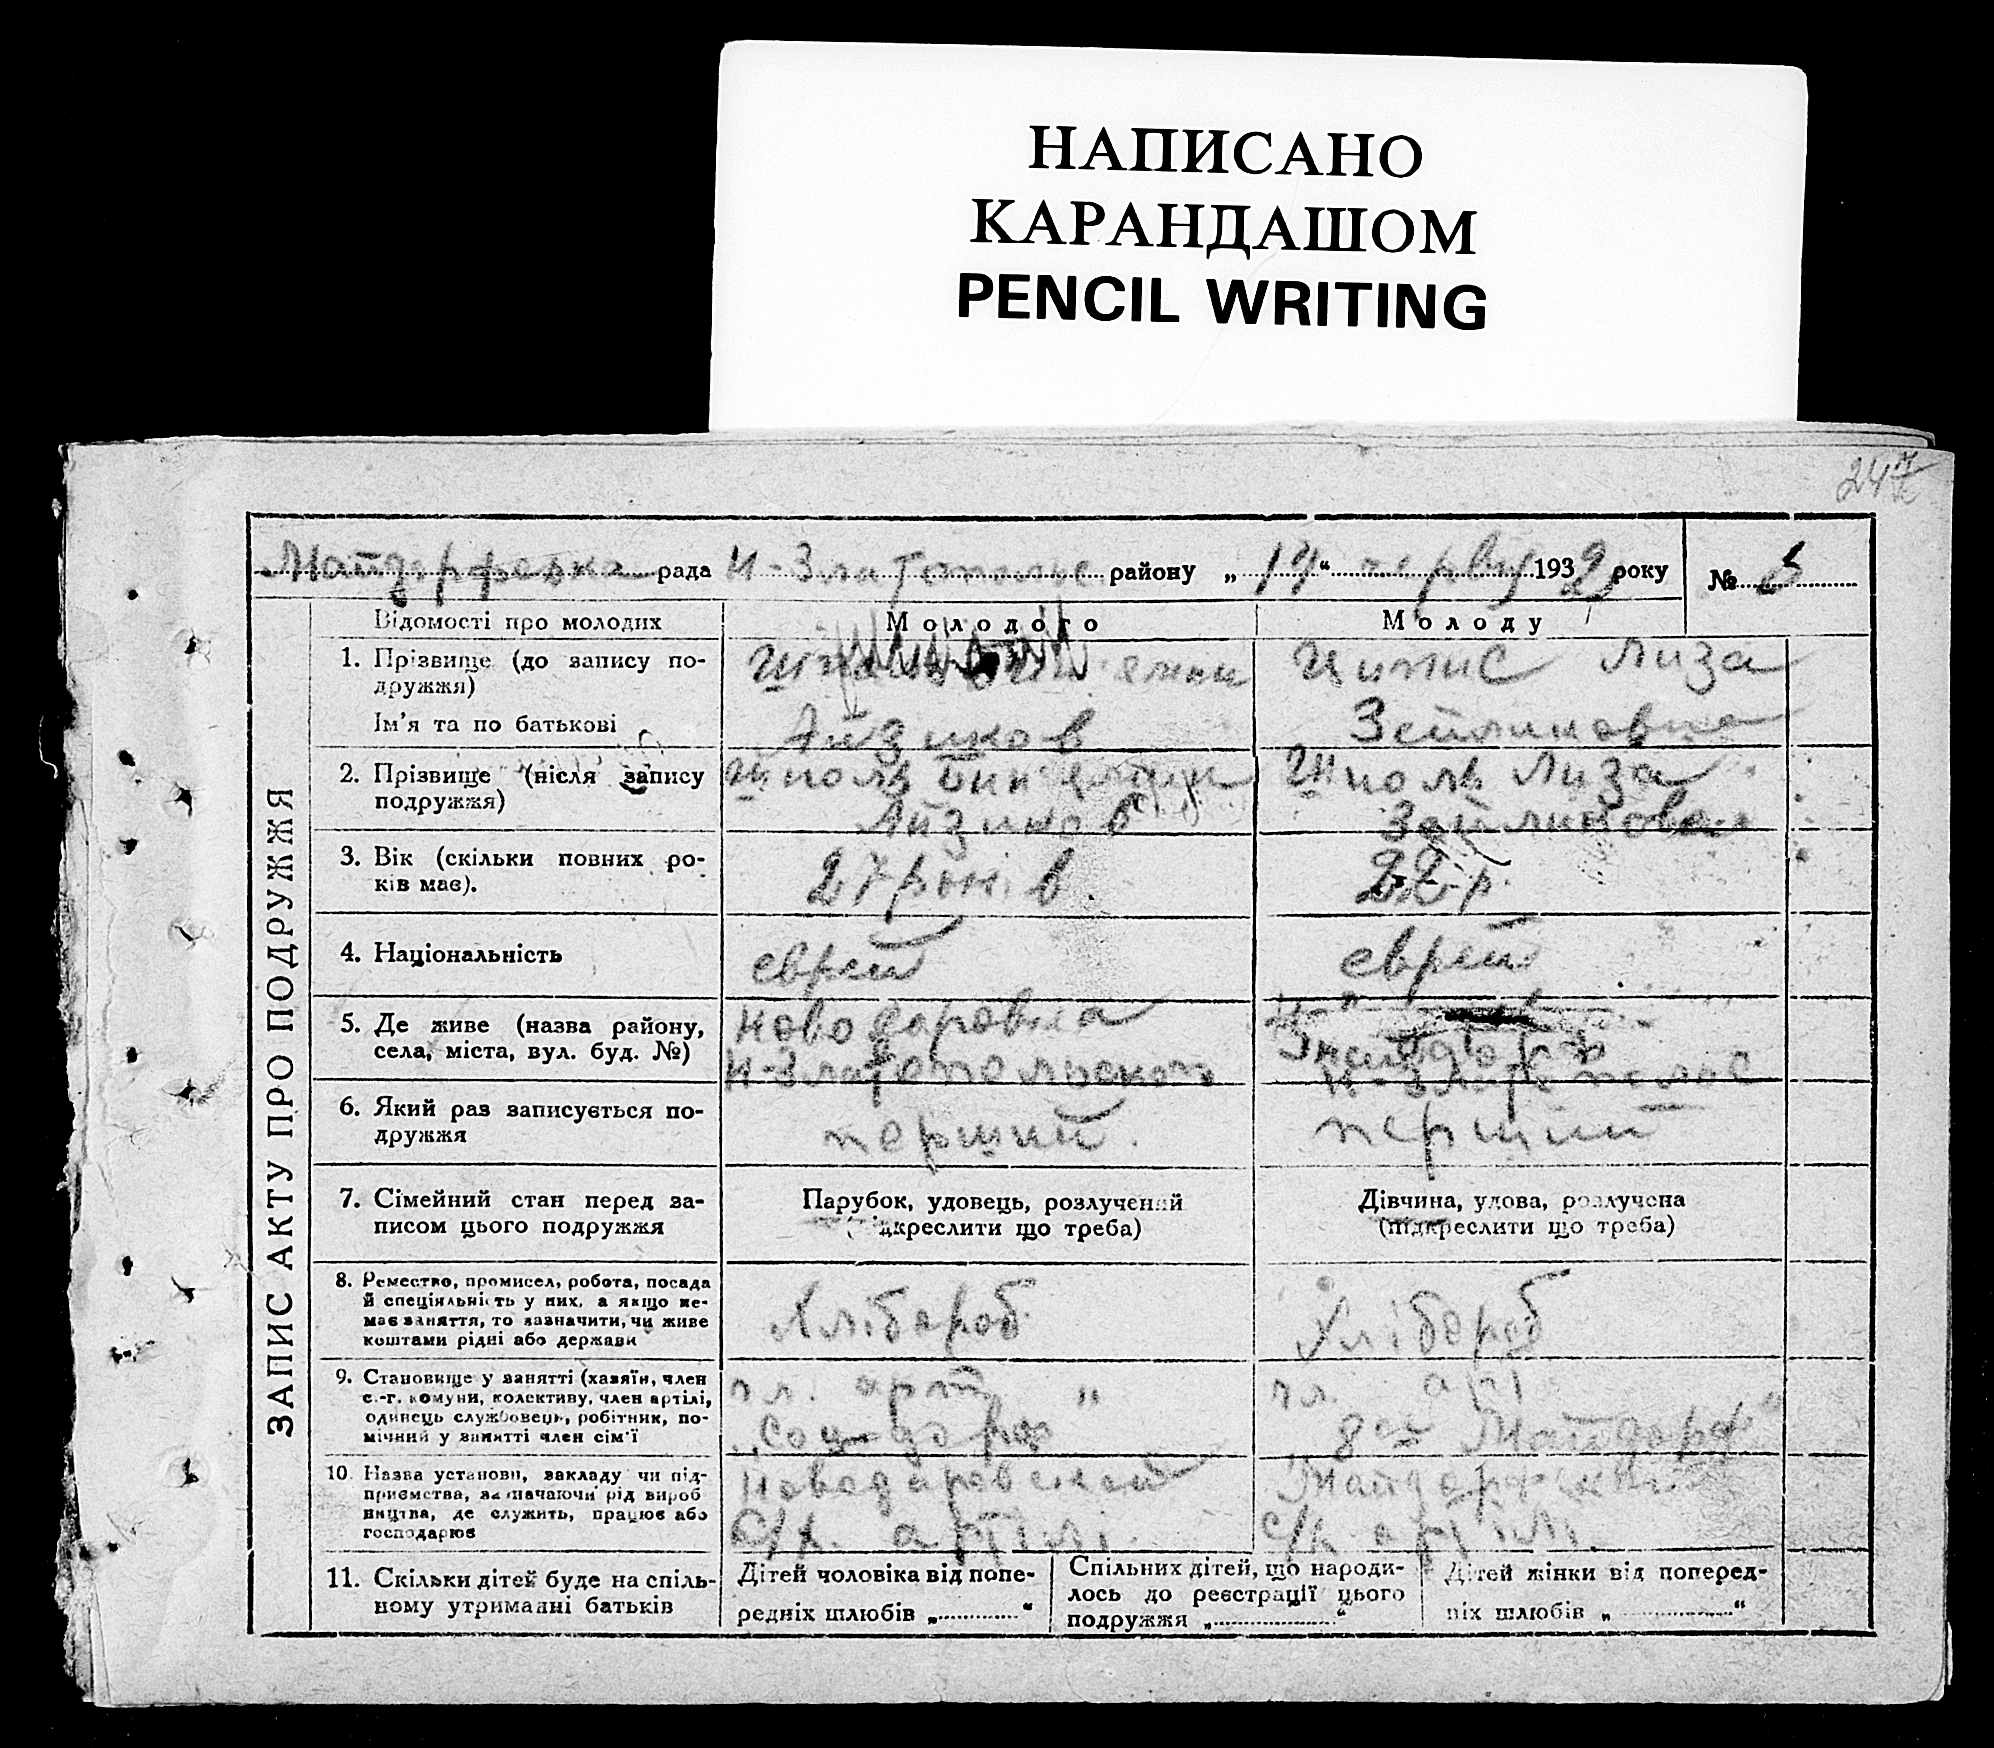 НАПИСАНО
КАРАНДАШОМ
PENCIL WRITING
рада Н-Златополье району „ 19 “ 1932 року
№ 3
ЗАПИС АКТУ ПРО ПОДРУЖЖЯ
Відомості про молодих Молодого Молоду
1. Прізвище (до запису по-
дружжя)
Ім'я та по батькові
Лиза
Айзиков
Зейликовна
2. Прізвище (після запису
подружжя)
Шполь
Айзиков
Шполь Лиза
3. Вік (скільки повних ро-
ків має).
27 років.
22 р.
4. Національність
єврей
єврей
5. Де живе (назва району,
села, міста, вул. буд. №)
Новодаровка
Н-Златопольского
6. Який раз записується по-
дружжя
перший.
перший
7. Сімейний стан перед за-
писом цього подружжя
Парубок, удовець, розлучений
підкреслити що треба)
Дівчина, удова, розлучена
(підкреслити що треба)
8. Ремество, промисел, робота, посада
й спеціяльність у них, а якщо не-
має заняття, то зазначити, чи живе
коштами рідні або держави
Хлібороб
Хлібороб
9. Становище у занятті (хазяїн, член
с.-г. комуни, колективу, член артілі,
одинець службовець, робітник, по-
мічний у занятті член сім'ї
чл. арт "
„Соцдорф
чл. арт
Майдорф"
10. Назва установи, закладу чи під-
приємства, зазначаючи рід вироб
ництва, де служить, працює або
господарює
с/г. артілі
с/г. артілі.
11. Скільки дітей буде на спіль-
ному утриманні батьків
Дітей чоловіка від попе-
редніх шлюбів „ “
Спільних дітей, що народи-
лось до реєстрації цього
подружжя „ “
Дітей жінки від поперед-
ніх шлюбів „ “